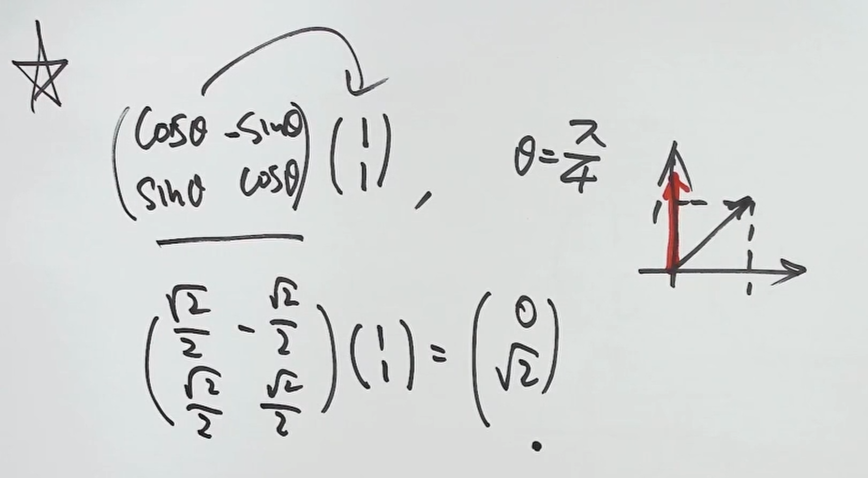 (cosθ -sinθ
sinθ cosθ) (1
1), θ=π/4
(√2/2 -√2/2
√2/2 √2/2) (1
1) = (0
√2).